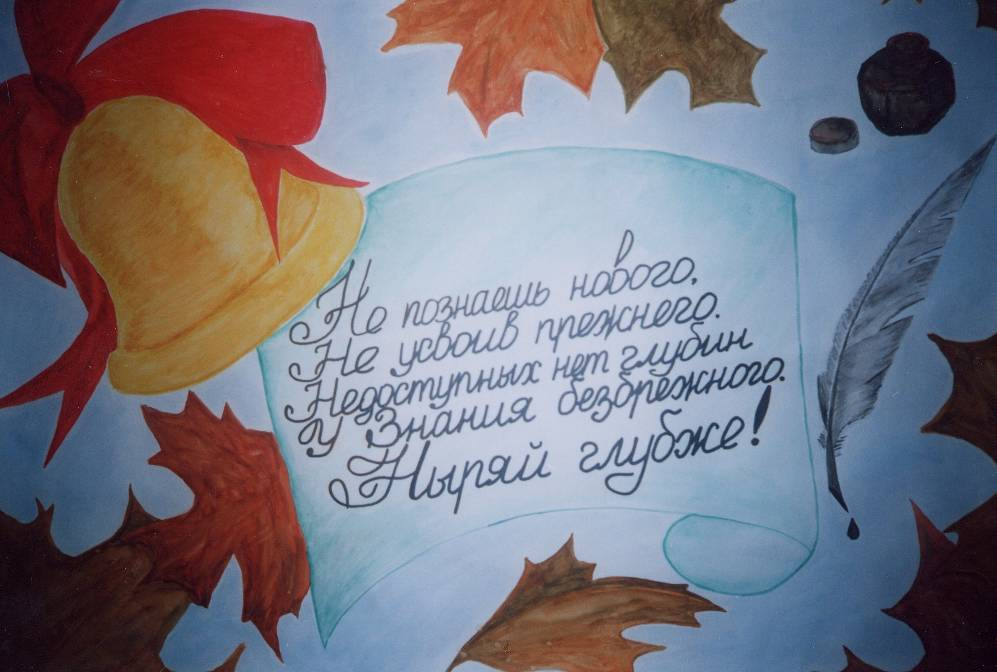 Не познаешь нового,
Не усвоив прежнего.
Недоступных нет глубин
У Знания безбрежного.
Ныряй глубже!